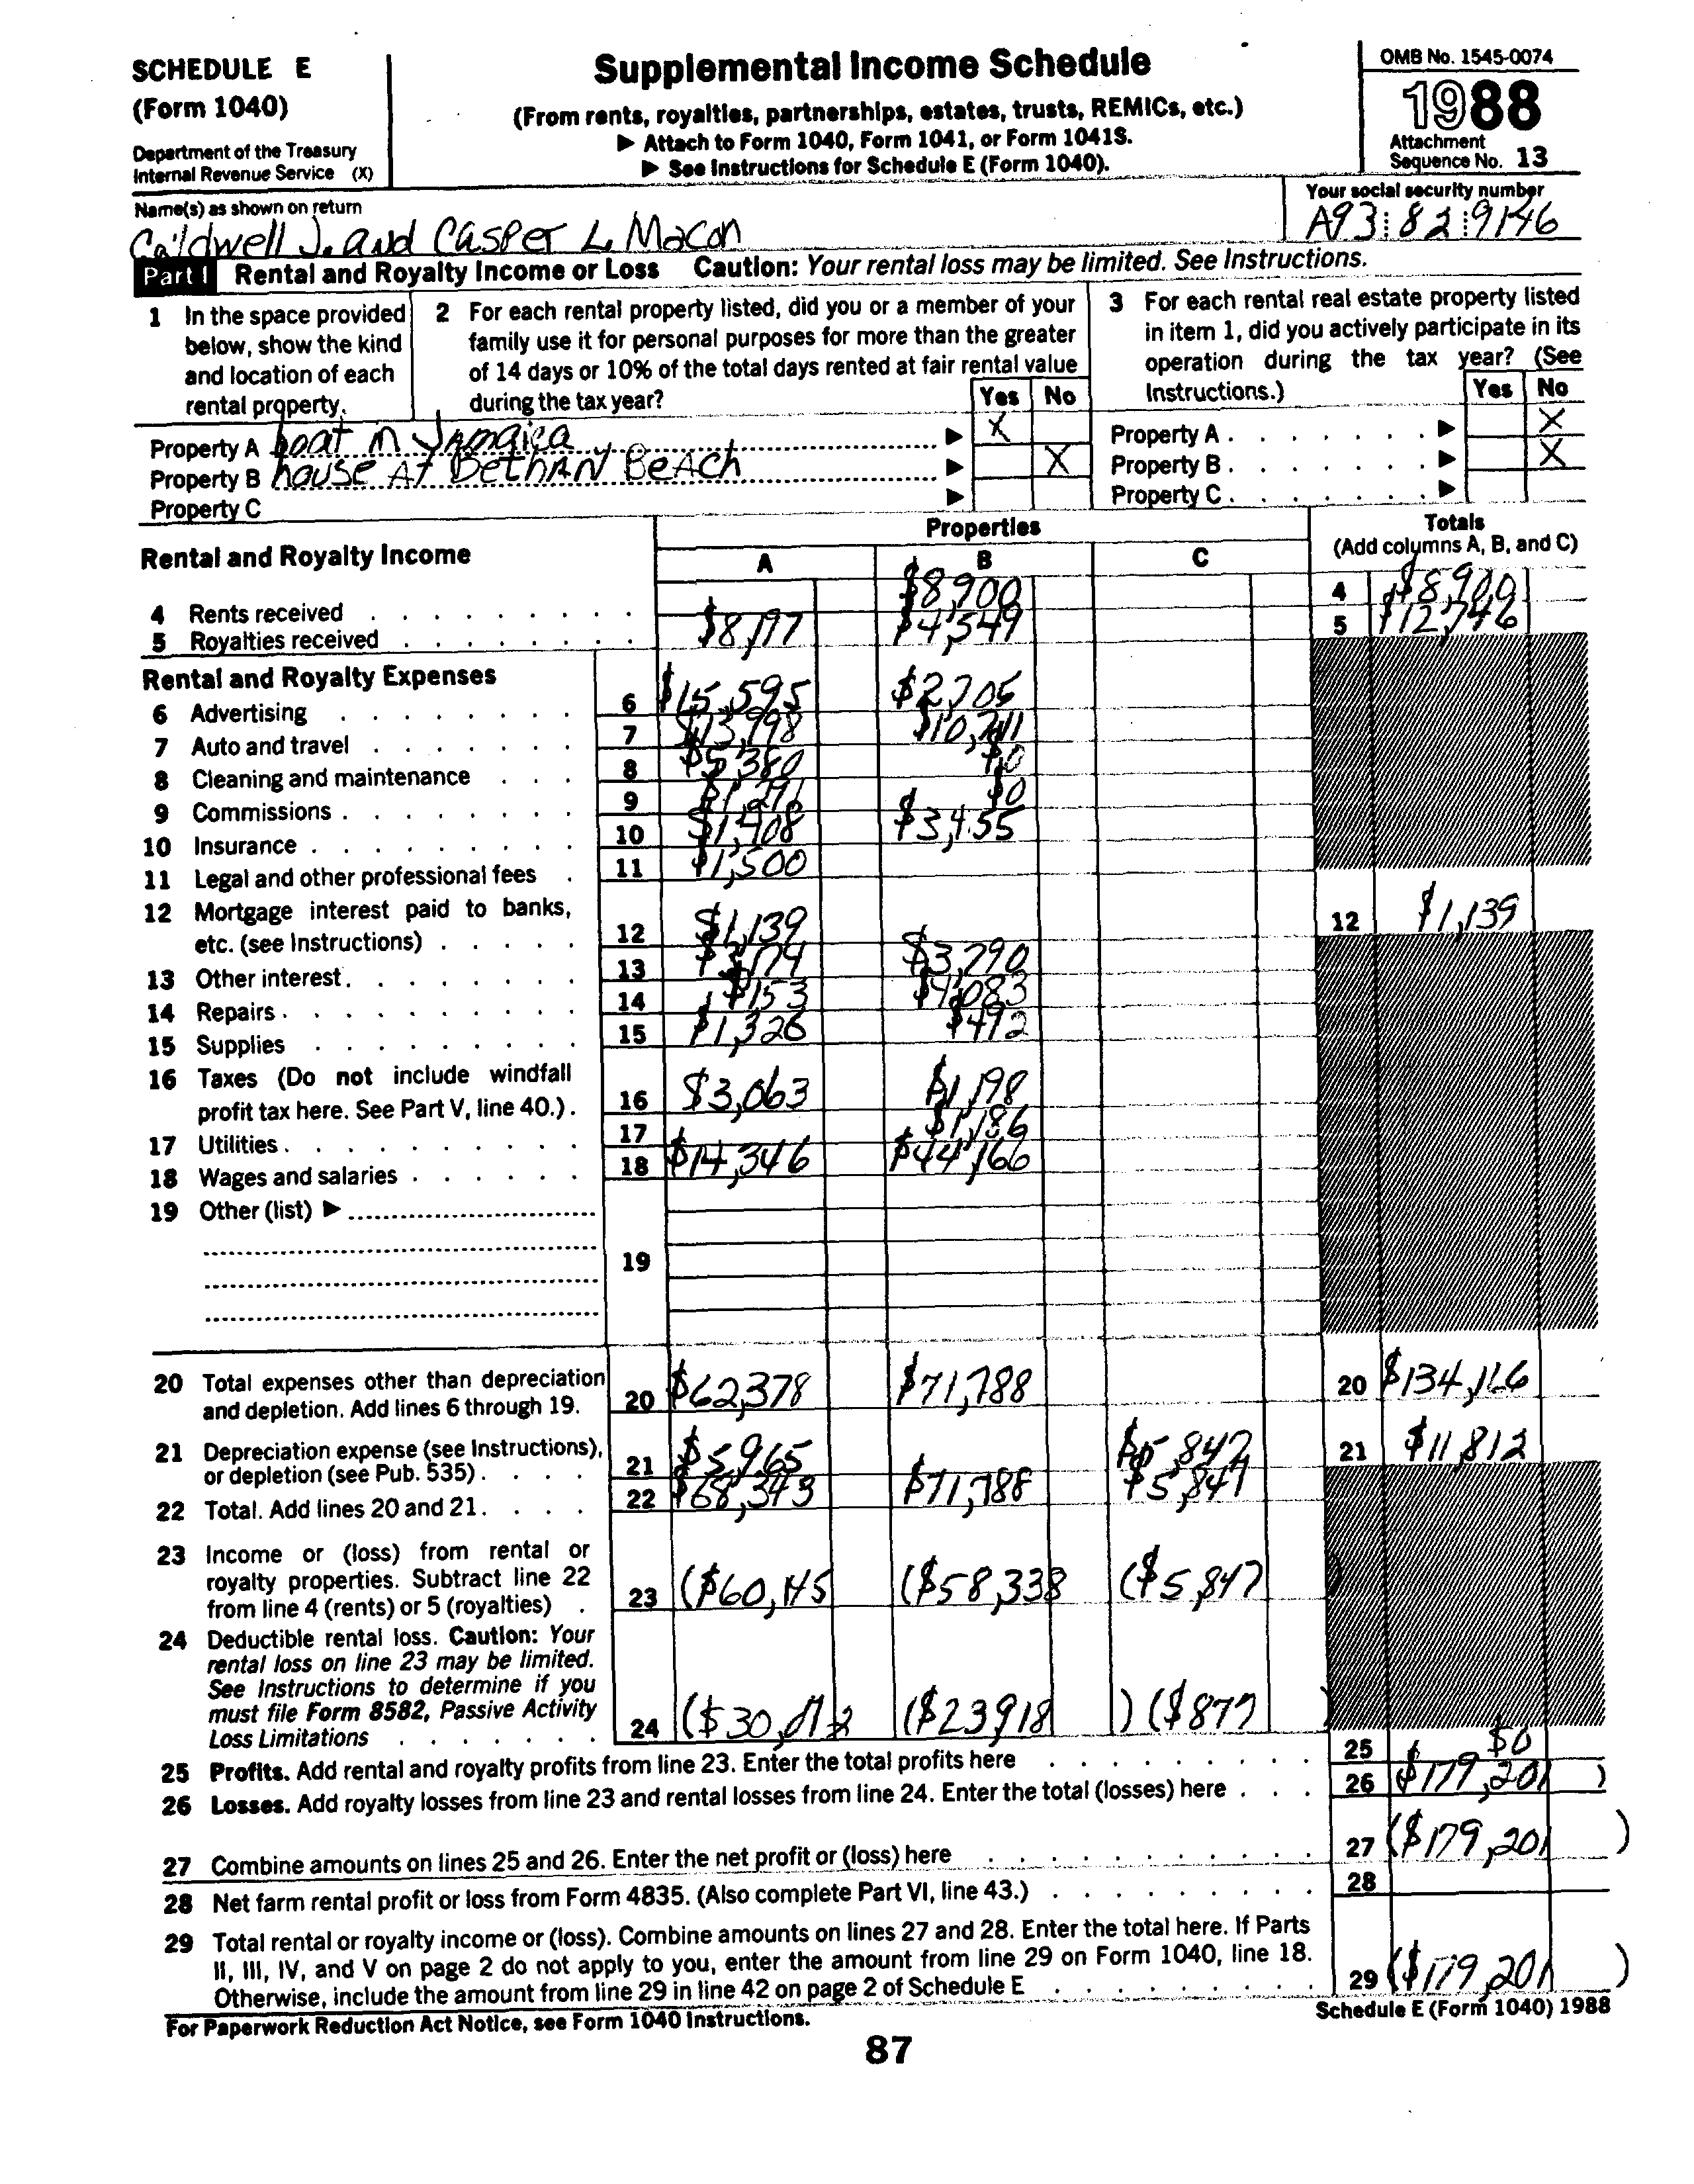 SCHEDULE E
(Form 1040)
Department of the Treasury
Internal Revenue Service (X)
Supplemental Income Schedule
(From rents, royalties, partnerships, estates, trusts, REMICs, etc.)
▶ Attach to Form 1040, Form 1041, or Form 1041S.
▶ See Instructions for Schedule E (Form 1040).
OMB No. 1545-0074
1988
Attachment
Sequence No. 13
Name(s) as shown on return
Caldwell J. and Casper L. Macon
Your social security number
A93 82 9146
Part I Rental and Royalty Income or Loss Caution: Your rental loss may be limited. See Instructions.
1 In the space provided
below, show the kind
and location of each
rental property.
2 For each rental property listed, did you or a member of your
family use it for personal purposes for more than the greater
of 14 days or 10% of the total days rented at fair rental value
during the tax year?
Yes No
3 For each rental real estate property listed
in item 1, did you actively participate in its
operation during the tax year? (See
Instructions.)
Yes No
Property A boat in Jamaica ▶ X Property A ▶ X
Property B house At BethAN BeAch ▶ X Property B ▶ X
Property C ▶ Property C ▶
Rental and Royalty Income
Properties
A B C
Totals
(Add columns A, B, and C)
4 Rents received $8,900 4 $8,900
5 Royalties received $8,197 $4,549 5 $12,746
Rental and Royalty Expenses
6 Advertising 6 $15,595 $2,705
7 Auto and travel 7 $13,998 $10,711
8 Cleaning and maintenance 8 $5,380 $0
9 Commissions 9 $0
10 Insurance 10 $1,408 $3,455
11 Legal and other professional fees 11 $1,500
12 Mortgage interest paid to banks,
etc. (see Instructions) 12 $1,139 12 $1,139
13 Other interest 13 $3,290
14 Repairs 14 $153 $4,083
15 Supplies 15 $1,326 $492
16 Taxes (Do not include windfall
profit tax here. See Part V, line 40.) 16 $3,063 $1,198
17 Utilities 17 $1,186
18 Wages and salaries 18 $14,346 $44,166
19 Other (list) ▶
19
20 Total expenses other than depreciation
and depletion. Add lines 6 through 19. 20 $62,378 $71,788 20 $134,166
21 Depreciation expense (see Instructions),
or depletion (see Pub. 535) 21 $5,965 $5,847 21 $11,812
22 Total. Add lines 20 and 21 22 $68,343 $71,788 $5,847
23 Income or (loss) from rental or
royalty properties. Subtract line 22
from line 4 (rents) or 5 (royalties) 23 ($60,145 ($58,338 ($5,847 )
24 Deductible rental loss. Caution: Your
rental loss on line 23 may be limited.
See Instructions to determine if you
must file Form 8582, Passive Activity
Loss Limitations 24 ($23,918 ) ($877 )
25 Profits. Add rental and royalty profits from line 23. Enter the total profits here 25 $0
26 Losses. Add royalty losses from line 23 and rental losses from line 24. Enter the total (losses) here 26 ($179,201 )
27 Combine amounts on lines 25 and 26. Enter the net profit or (loss) here 27 ($179,201 )
28 Net farm rental profit or loss from Form 4835. (Also complete Part VI, line 43.) 28
29 Total rental or royalty income or (loss). Combine amounts on lines 27 and 28. Enter the total here. If Parts
II, III, IV, and V on page 2 do not apply to you, enter the amount from line 29 on Form 1040, line 18.
Otherwise, include the amount from line 29 in line 42 on page 2 of Schedule E 29 ($179,201 )
For Paperwork Reduction Act Notice, see Form 1040 Instructions. Schedule E (Form 1040) 1988
87